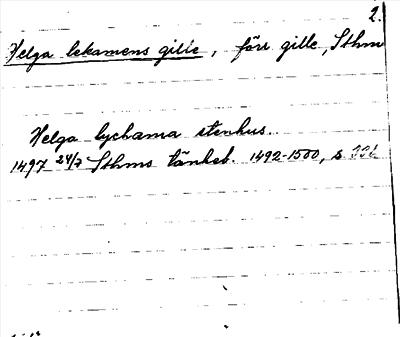 2.
Helga lekamens gille, förr gille, Sthm
Helga lychama stenhus.
1497 24/7 Sthms tänkeb. 1492-1500, s